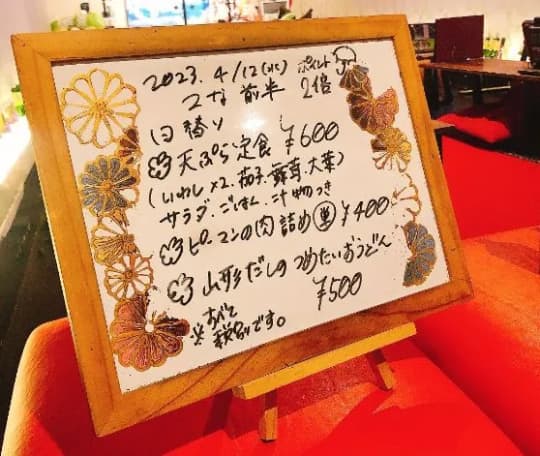 2023. 4/12(水) ポイント
つな 前半 2倍
日替り
天ぷら定食 ¥600
(いわし×2、茄子、舞茸、大葉)
サラダ、ごはん、汁物つき
ピーマンの肉詰め 単 ¥400
山形だしのつめたいおうどん
¥500
※すべて
税別です。